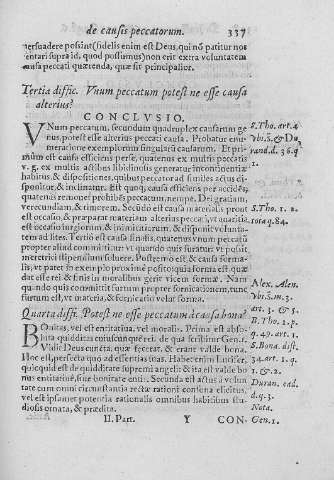 de causis peccatorum.
337
persuadere possint (fidelis enim est Deus, qui nō patitur nos
tentari supra id, quod possumus) non erit extra voluntatem
causa peccati quærenda, quæ sit principalior.
Tertia diffic. Vnum peccatum potest ne esse causa
alterius?
CONCLVSIO.
VNum peccatum, secundum quadruplex causarum ge
nus, potest esse alterius peccati causa. Probatur enu-
meratione exemplorum singularū causarum. Et pri
mum est causa efficiens per se, quatenus ex multis peccatis
v. g. ex multis actibus libidinosis generatur incontinentiæ
habitus, & dispositiones, quibus peccator ad similes actus di-
sponitur, & inclinatur. Est quoq; causa efficiens per accidēs,
quatenus remouet prohibens peccatum, nempe, Dei gratiam,
verecundiam, & timorem. Secūdo est causa materialis prout
est occasio, & præparat materiam alterius peccati, vt auaritia
est occasio iurgiorum, & inimicitiarum, & disponit volunta-
tem ad lites. Tertio est causa finalis, quatenus vnum peccatū
propter aliud committitur: vt quando quis furatur, vt possit
meretrici stipendium soluere. Postremo est, & causa forma-
lis, vt patet in exemplo proxime posito: quia forma est, quæ
dat esse rei & finis in moralibus gerit vicem formæ. Nam
quando committit furtum propter fornicationem, tunc
furtum est materia, & fornicatio velut forma.
Quarta diffi. Potest ne esse peccatum à causa bona?
BOnitas, vel est entitatiua, vel moralis. Prima est abso-
luta quidditas cuiuscunq; rei: de qua scribitur Gen. 1.
Vidit Deus cuncta, quæ fecerat, & erant valde bona.
Hoc est, perfecta quo ad essentias suas. Habet enim Lucifer,
quicquid est de quidditate supremi angeli: & ita est valde bo
nus entitatiuè, siue bonitate entis. Secunda est actus à volun-
tate cum omni circumstantia rectæ rationi consona elicitus,
vel est ipsamet potentia rationalis omnibus habitibus stu-
diosis ornata, & prædita.
II. Part.
Y
CON-
S. Tho. art. 4
Vbi. S. & Du
rand. d. 36. q
1.
S. Tho. 1. 2.
tota q. 84.
Alex. Alen.
Vbi. S. m. 3.
art. 3. & 5.
B. Tho. 1. p.
q. 49. art. 1.
S. Bona. dist.
34. art. 1. q.
1. & 2.
Duran. ead.
d. q. 3.
Nota.
Gen. 1.